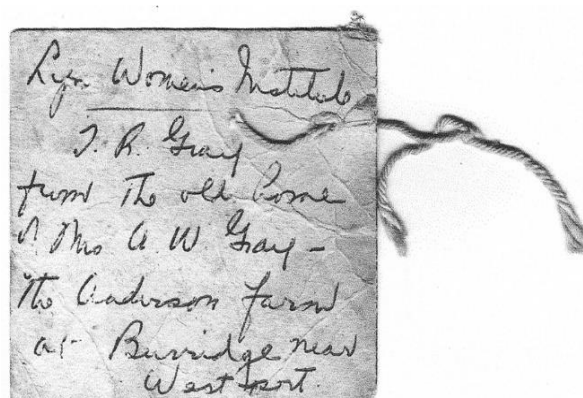 Lyn Women's Institute
T. R. Gray
from the old home
of Mrs A. W. Gray -
the Anderson farm
at Burridge near
Westport.